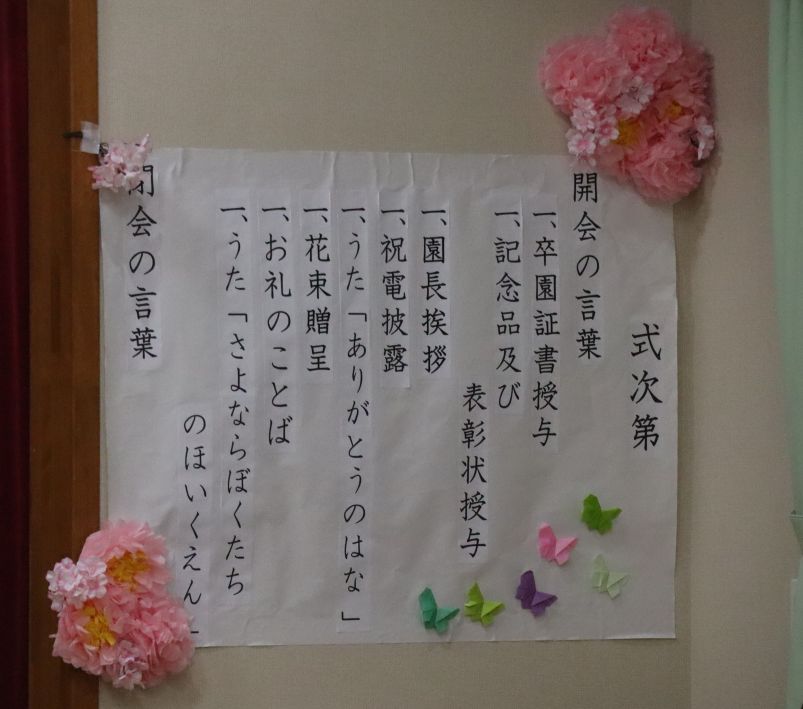 式次第
開会の言葉
一、卒園証書授与
一、記念品及び
表彰状授与
一、園長挨拶
一、祝電披露
一、うた「ありがとうのはな」
一、花束贈呈
一、お礼のことば
一、うた「さよならぼくたち
のほいくえん」
閉会の言葉